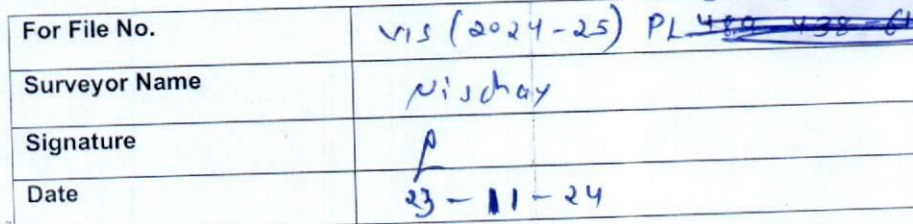 For File No. VIS (2024-25) PL
Surveyor Name Nischay
Signature
Date 23-11-24